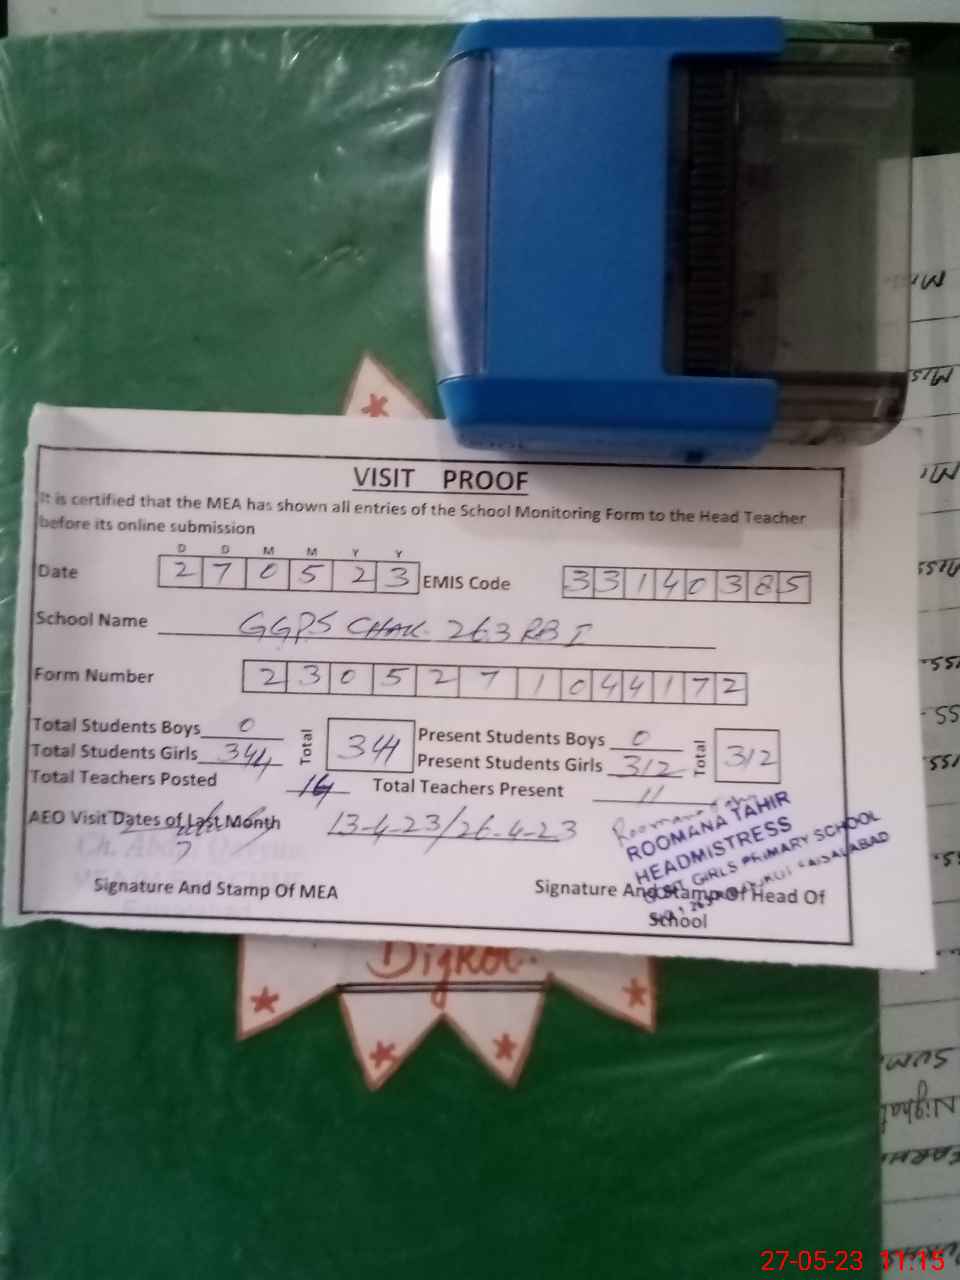 VISIT PROOF
It is certified that the MEA has shown all entries of the School Monitoring Form to the Head Teacher
before its online submission
D D M M Y Y
Date 2 7 0 5 2 3 EMIS Code 3 3 1 4 0 3 8 5
School Name GGPS CHAK. 263 RB I
Form Number 2 3 0 5 2 7 1 0 4 4 1 7 2
Total Students Boys 0 Total 344 Present Students Boys 0 Total 312
Total Students Girls 344 Present Students Girls 312
Total Teachers Posted 14 Total Teachers Present 11
AEO Visit Dates of Last Month 13-4-23/26-4-23
ROOMANA TAHIR
HEADMISTRESS
GIRLS PRIMARY SCHOOL
FAISALABAD
Signature And Stamp Of MEA Signature And Stamp Of Head Of
School
27-05-23 11:15